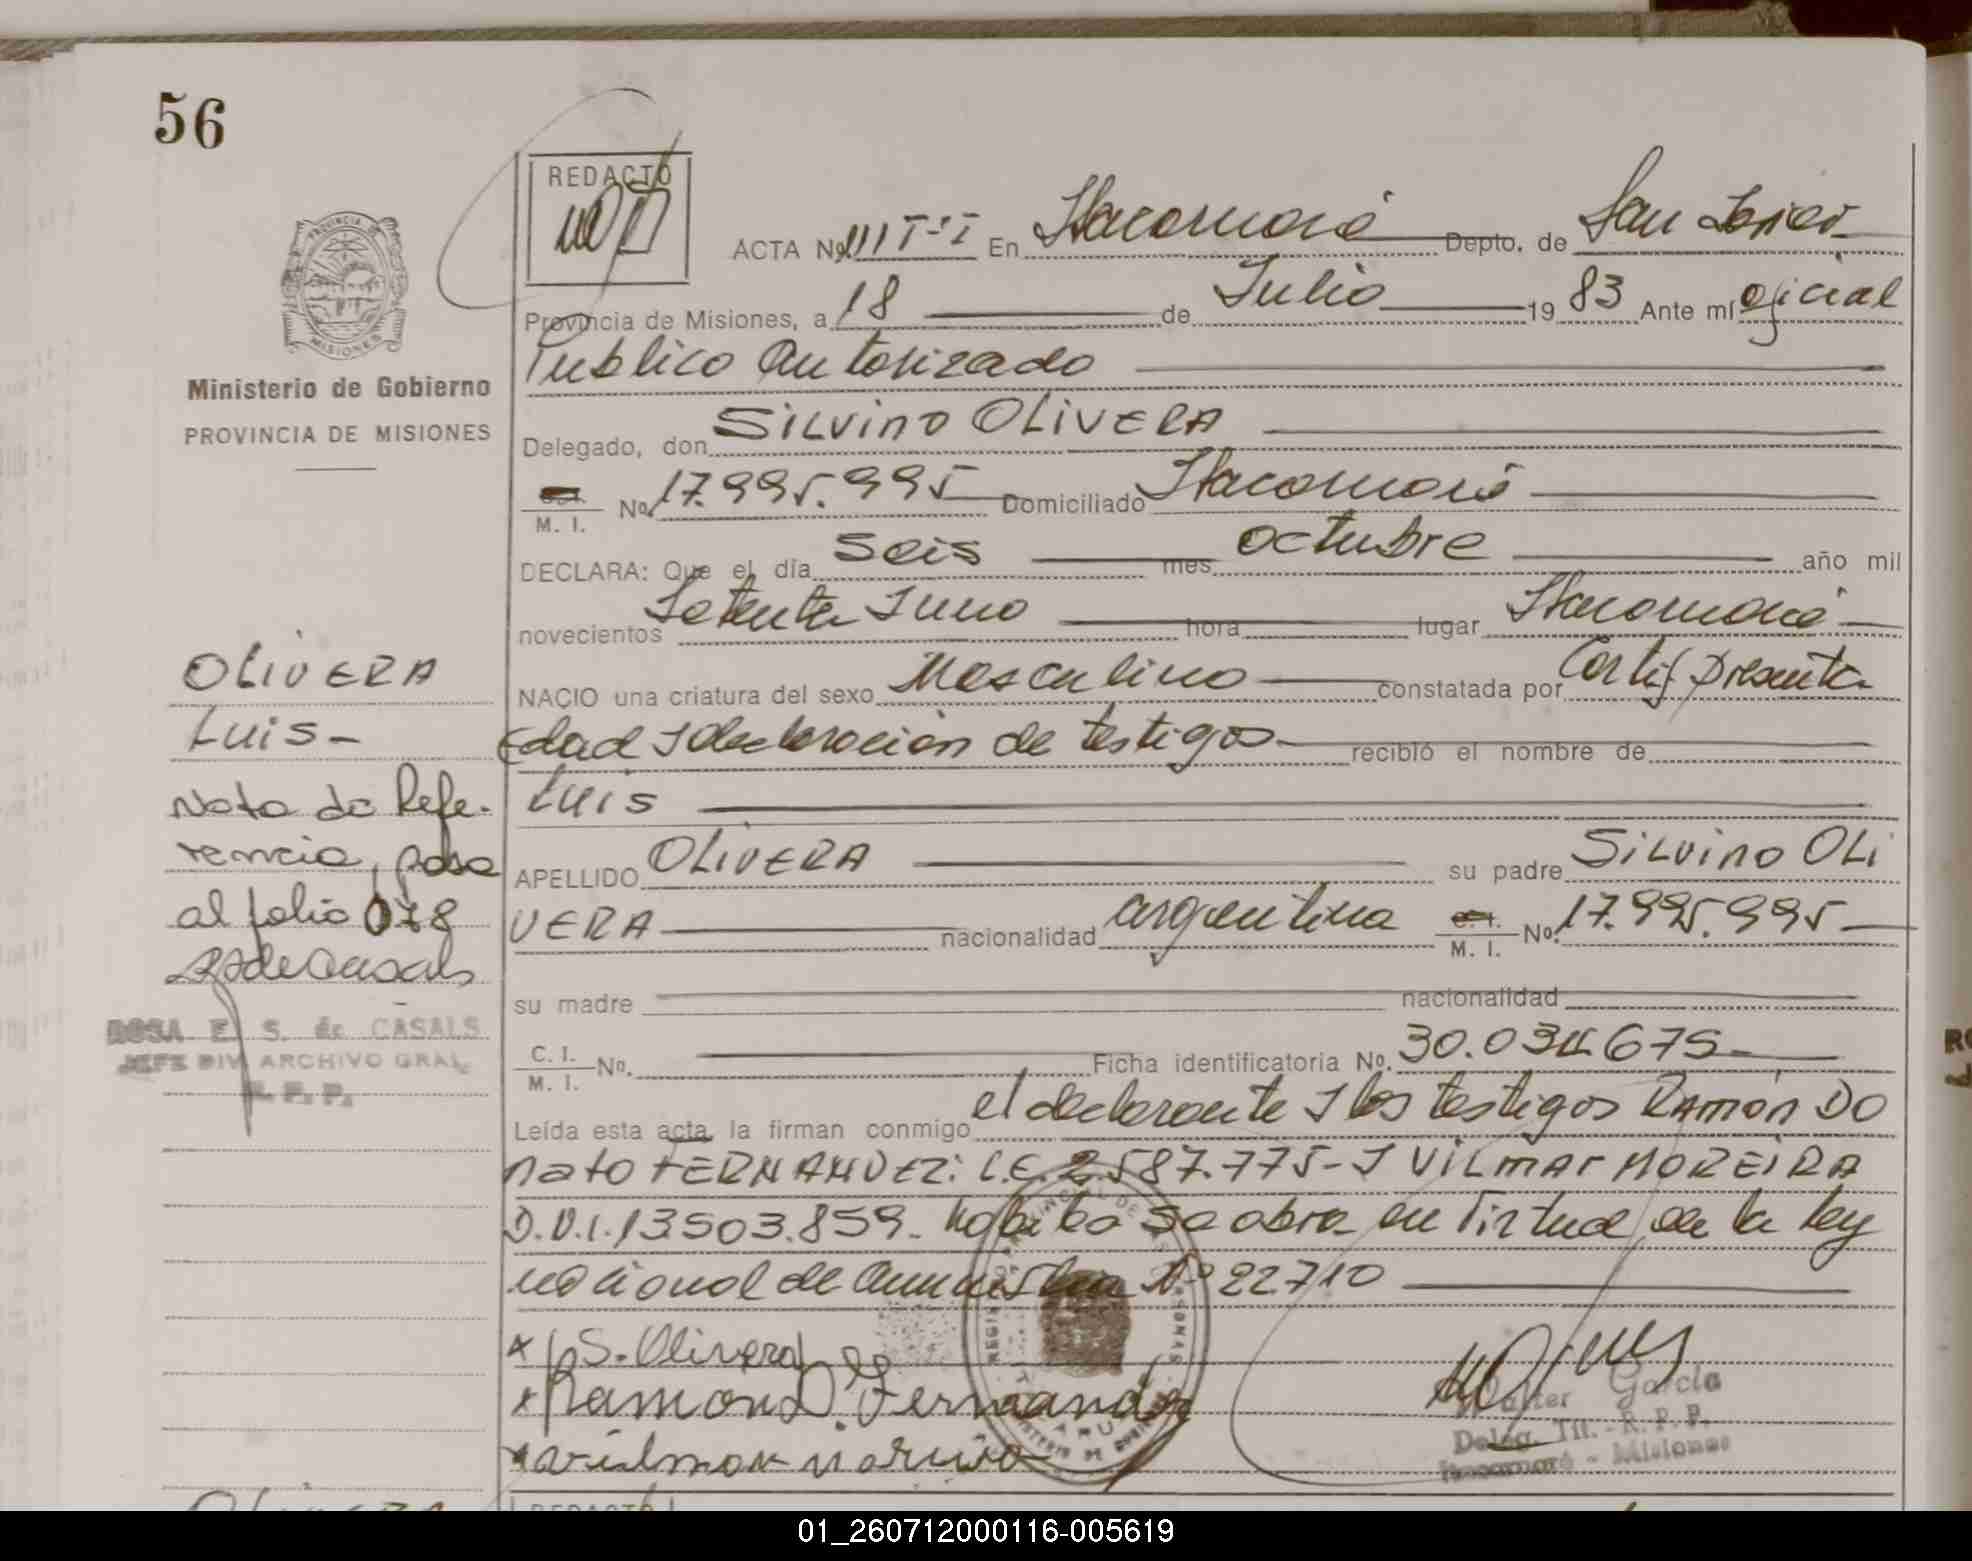 56
PROVINCIA DE
MISIONES
Ministerio de Gobierno
PROVINCIA DE MISIONES
REDACTO
ACTA Nº En Itacaruaré Depto. de San Javier
Provincia de Misiones, a 18 de Julio 1983 Ante mí oficial
Publico Autorizado
Delegado, don SILVINO OLIVERA
M. I. No. 17.995.995 Domiciliado Itacaruaré
DECLARA: Que el día seis mes octubre año mil
novecientos Setenta y uno hora lugar Itacaruaré
NACIO una criatura del sexo Masculino constatada por Certif presunta
Edad y declaración de testigos recibió el nombre de
Luis
APELLIDO OLIVERA su padre SILVINO OLI
VERA nacionalidad argentina C. I. M. I. No. 17.995.995
su madre nacionalidad
C. I. M. I. No. Ficha identificatoria No. 30.034.675
Leída esta acta, la firman conmigo el declarante y los testigos RAMÓN DO
NATO FERNANDEZ: L.E. 2.587.775 - y VILMAR MOREIRA
D.N.I. 13.503.859. se abre en virtud de la ley
nacional de amnistía Nº 22710
OLIVERA
Luis -
Nota de Refe-
rencia, pasa
al folio 078
ROSA E. S. de CASALS
JEFE DIV. ARCHIVO GRAL.
R. P. P.
x S. Olivera
x Ramon D. Fernandez
x vilmar
Walter García
Deleg. Tit. - R. P. P.
Itacaruaré - Misiones
OLIVERA
REDACTO
01_260712000116-005619